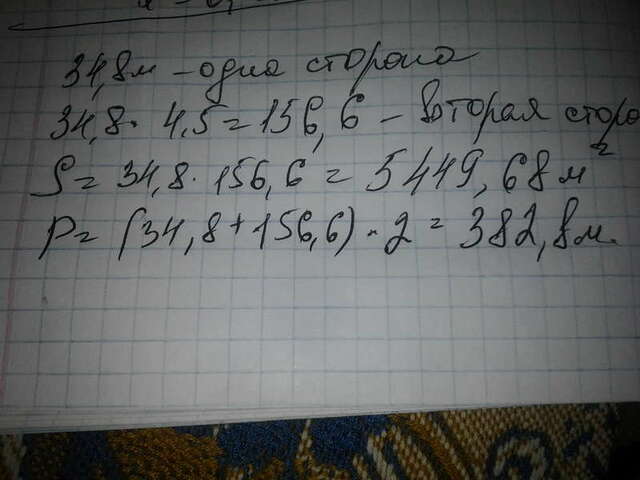 34,8м – одна сторона
34,8 · 4,5 = 156,6 – вторая сторо
S = 34,8 · 156,6 = 5449,68 м²
P = (34,8 + 156,6) · 2 = 382,8 м.